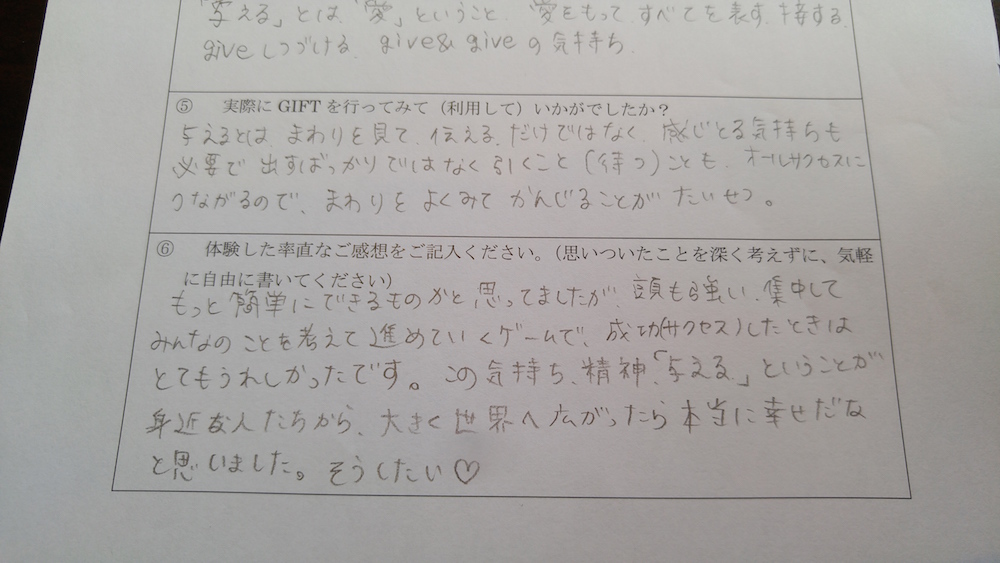 「与える」とは「愛」ということ、愛をもって すべてを表す、接する、
giveしつづける、give&giveの気持ち、
⑤ 実際に GIFT を行ってみて（利用して）いかがでしたか？
与えるとは、まわりを見て、伝える、だけではなく、感じとる気持ちも
必要で 出すばっかりではなく 引くこと（待つ）ことも、オールサクセスに
つながるので、まわりを よくみて かんじることが たいせつ。
⑥ 体験した率直なご感想をご記入ください。（思いついたことを深く考えずに、気軽
に自由に書いてください）
もっと簡単にできるものかと思ってましたが、頭も 、集中して
みんなのことを考えて進めていくゲームで、成功(サクセス)したときは
とてもうれしかったです。この気持ち、精神、「与える」ということが
身近な人たちから、大きく世界へ広がったら本当に幸せだな
と思いました。そうしたい♡